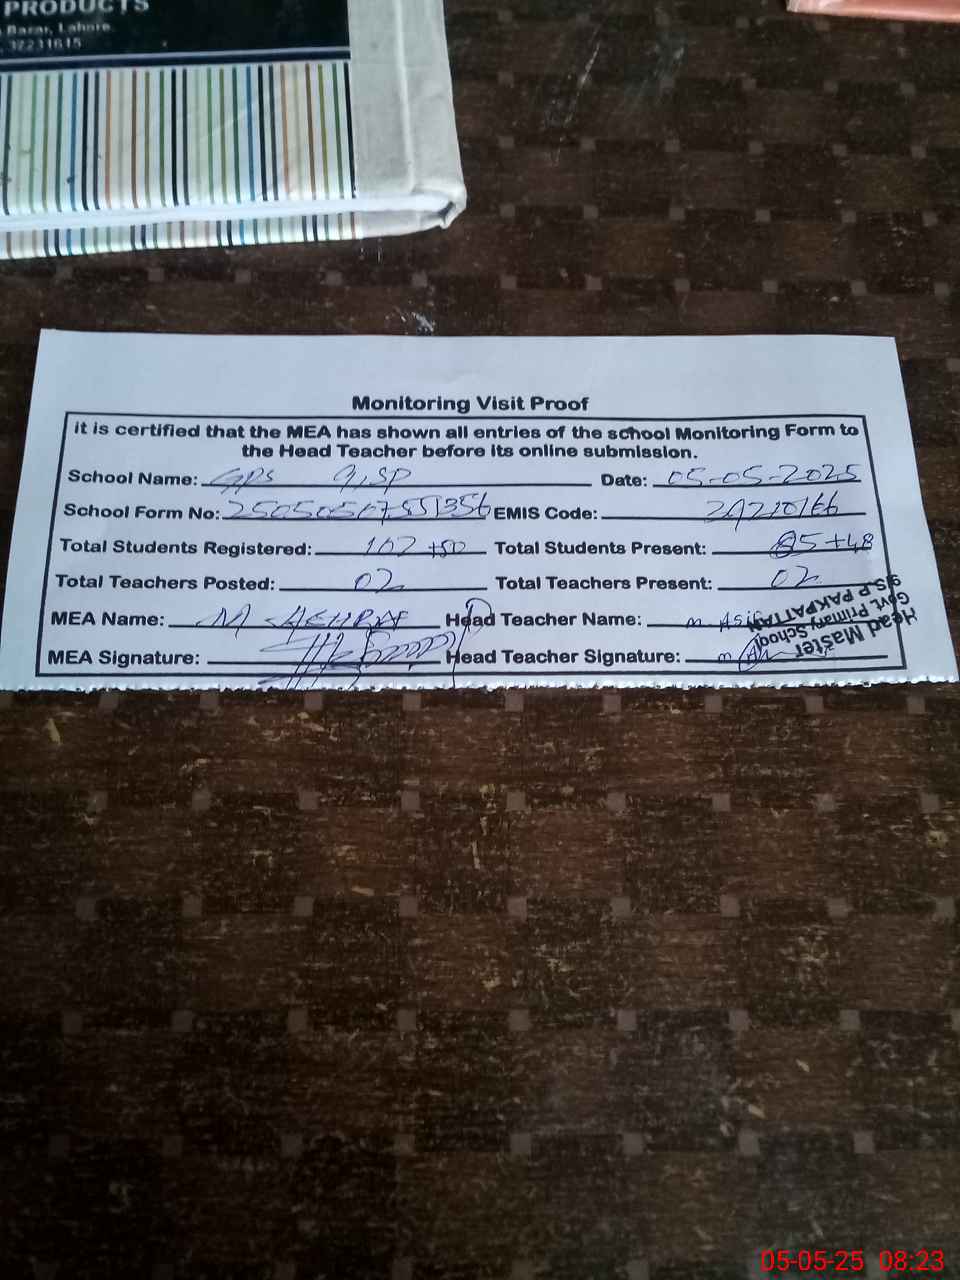 PRODUCTS
Bazar, Lahore.
32231615
Monitoring Visit Proof
it is certified that the MEA has shown all entries of the school Monitoring Form to
the Head Teacher before its online submission.
School Name: GPS 9,SP Date: 05-05-2025
School Form No: EMIS Code:
Total Students Registered: 102 +50 Total Students Present: 85+48
Total Teachers Posted: 02 Total Teachers Present: 02
MEA Name: M ASHRAF Head Teacher Name: M. Asif
MEA Signature: Head Teacher Signature:
Head Master
Govt. Primary School
9/S.P PAKPATTAN
05-05-25 08:23